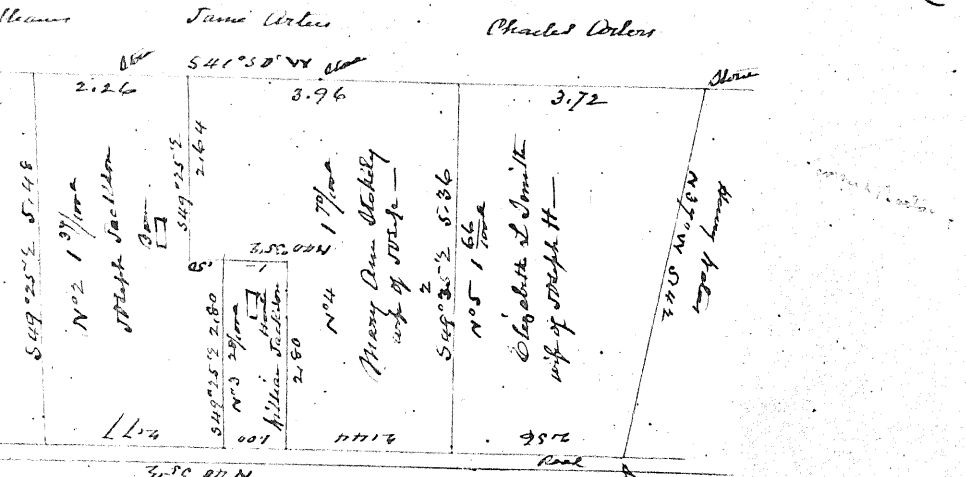 Jame Orters
Charles Orters
Stone
S41°30'W
Stone
Stone
2.26
3.96
3.72
S49°25'E 5.48
N°2 1 37/100 a
Joseph Jackson
Barn
S49°25'E
2.64
N40°35'E
.50
S49°25'E 2.80
N°3 28/100 a
House
William Jackson
2.80
N°4 1 70/100 a
Mary Ann Stokily
wife of Joseph
S49°25'E 5.36
N°5 1 66/100 a
Elizabeth L Smith
wife of Joseph H
N37°W 5.42
Henry
2.77
1.00
2.44
2.56
Road